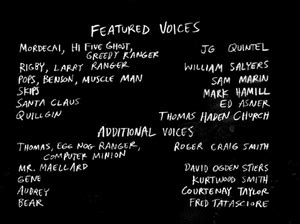 FEATURED VOICES
MORDECAI, HI FIVE GHOST, GREEDY RANGER JG QUINTEL
RIGBY, LARRY RANGER WILLIAM SALYERS
POPS, BENSON, MUSCLE MAN SAM MARIN
SKIPS MARK HAMILL
SANTA CLAUS ED ASNER
QUILLGIN THOMAS HADEN CHURCH
ADDITIONAL VOICES
THOMAS, EGG NOG RANGER, COMPUTER MINION ROGER CRAIG SMITH
MR. MAELLARD DAVID OGDEN STIERS
GENE KURTWOOD SMITH
AUDREY COURTENAY TAYLOR
BEAR FRED TATASCIORE